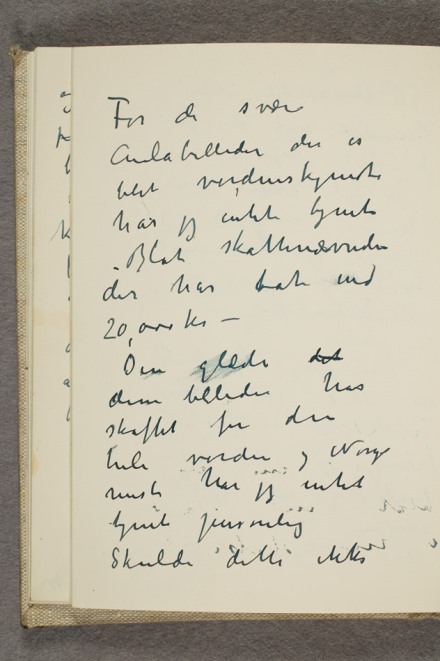 For de svære
Aulabilleder der er
blet verdenskjendte
har jeg intet tjent
Blot skattenævnden
der har tat ind
20,000 kr –
Den glæde det
disse billeder har
skaffet for den
hele verden og Norge
mest har jeg intet
tjent personlig
Skulde dette ikke